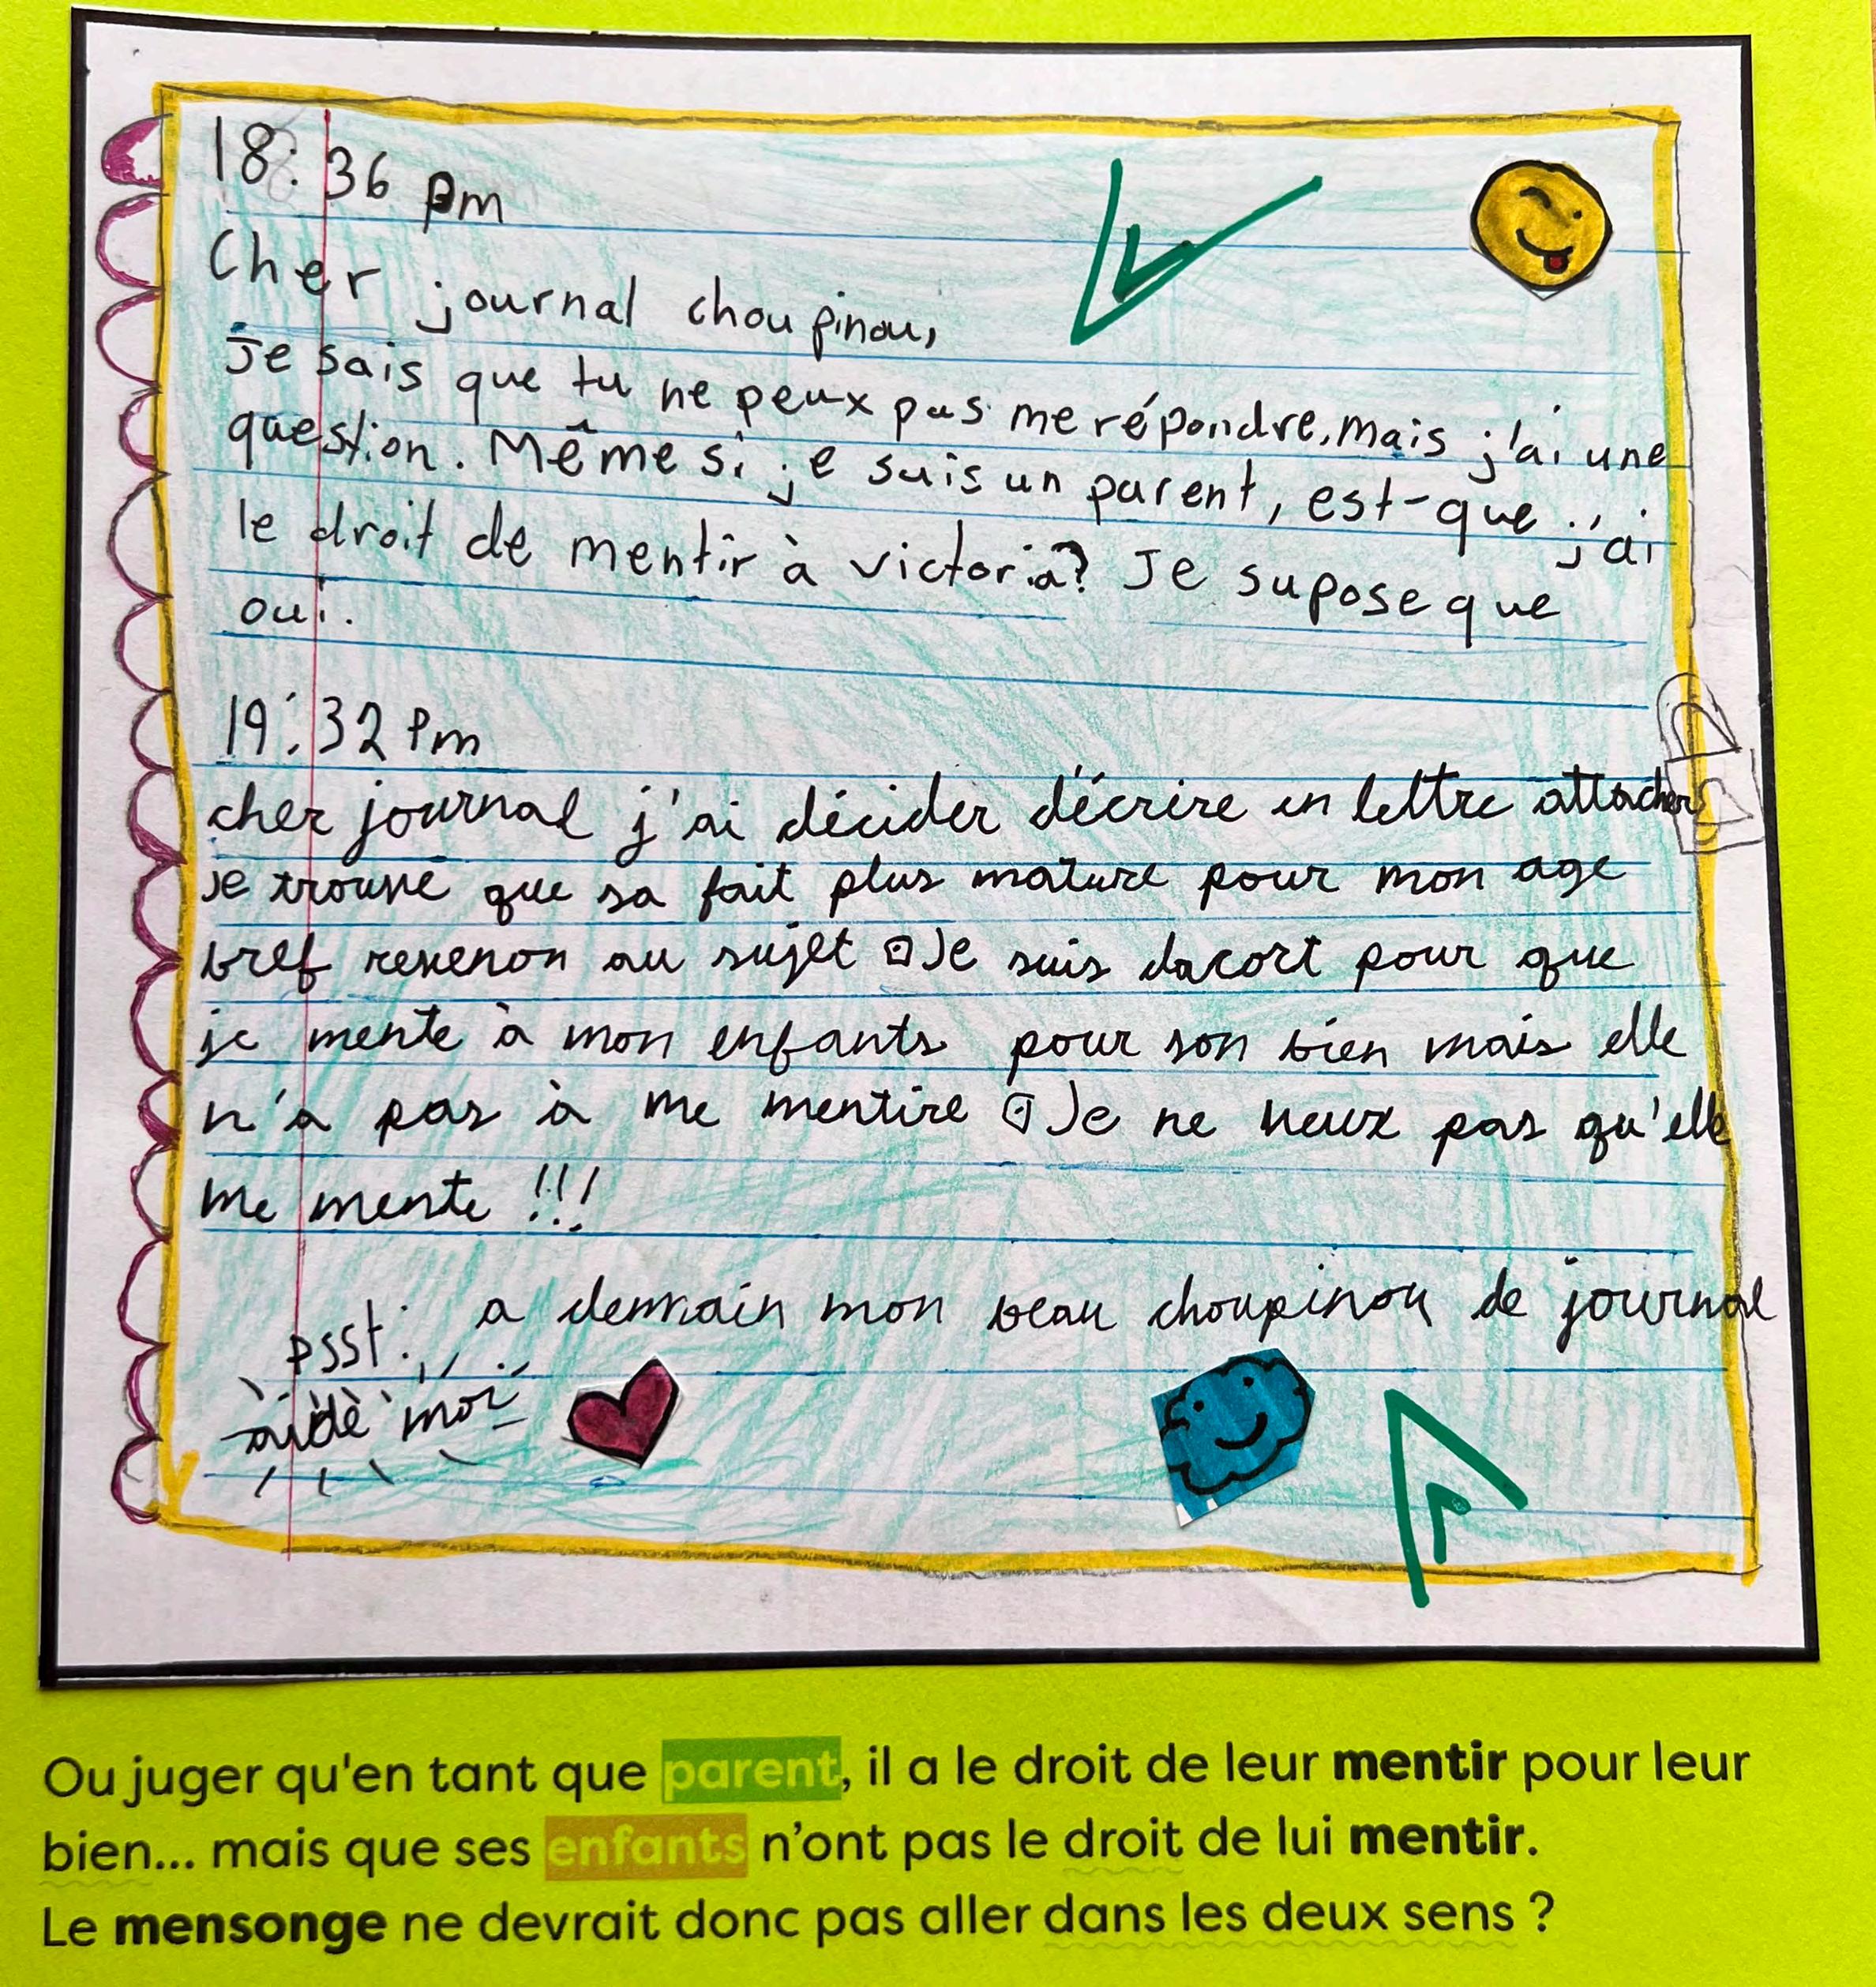 18:36 pm
Cher journal choupinou,
Je sais que tu ne peux pas me répondre, mais j'ai une
question. Même si je suis un parent, est-que j'ai
le droit de mentir à victoria? Je supose que
oui.
19:32 Pm
cher journal j'ai décider d'écrire en lettre attacher
je trouve que sa fait plus mature pour mon age
bref revenon au sujet . Je suis dacort pour que
je mente à mon enfants pour son bien mais elle
n'a pas à me mentire . Je ne veux pas qu'elle
me mente !!!
a demain mon beau choupinou de journal
psst:
aidè moi
Ou juger qu'en tant que parent, il a le droit de leur mentir pour leur
bien... mais que ses enfants n'ont pas le droit de lui mentir.
Le mensonge ne devrait donc pas aller dans les deux sens ?